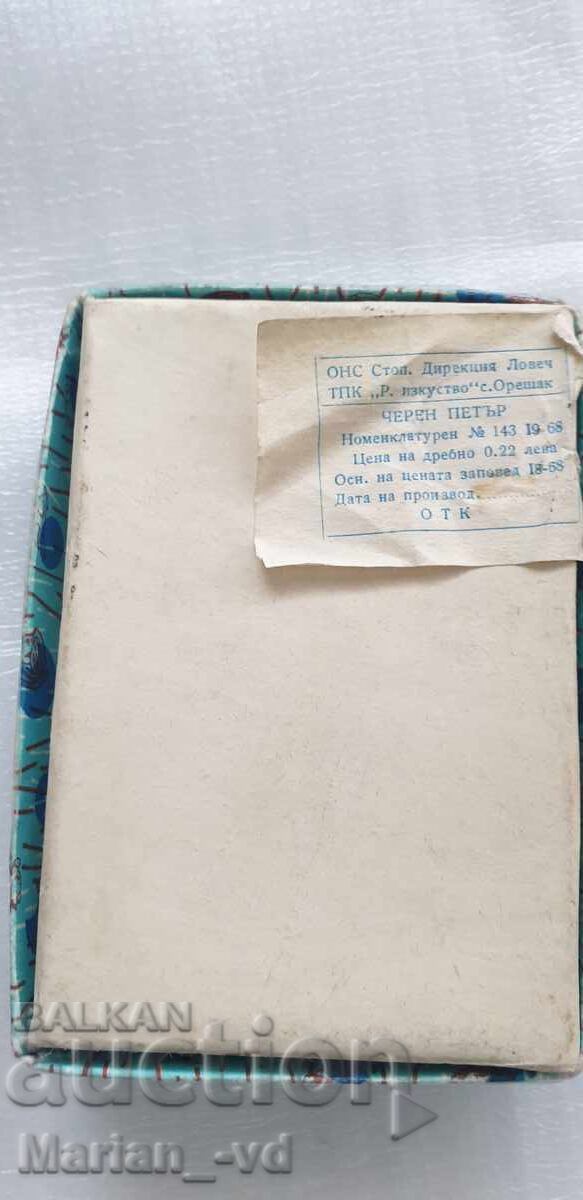 ОНС Стоп. Дирекция Ловеч
ТПК „Р. изкуство“ с. Орешак
ЧЕРЕН ПЕТЪР
Номенклатурен № 143 19-68
Цена на дребно 0.22 лева
Осн. на цената заповед 18-68
Дата на производ..............
О Т К
BALKAN
auction
Marian_-vd